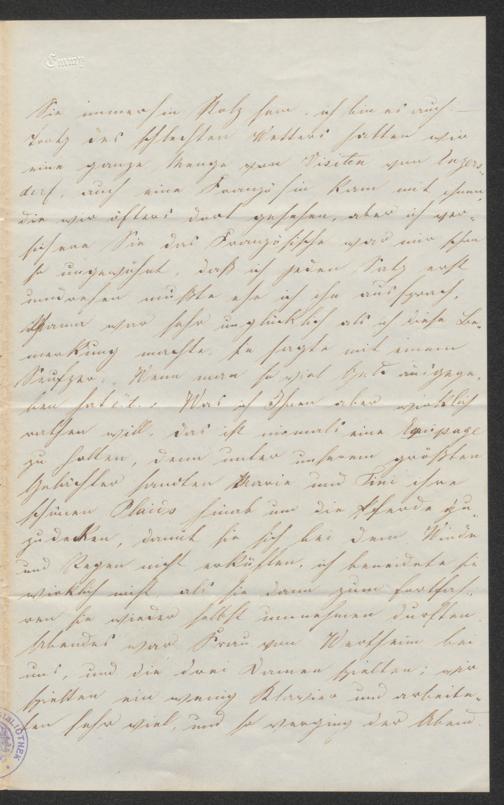 Emmy
Sie immerhin Stolz sein, ich bin es auch –
Trotz des schlechten Wetters hatten wir
eine ganze Menge von Visiten von Enzers-
dorf, auch eine Französin kam mit ihnen,
die wir öfters dort gesehen, aber ich ver-
sichere Sie das Französische war mir schon
so ungewohnt, daß ich jeden Satz erst
umdrehen mußte ehe ich ihn aussprach,
Mama war sehr unglücklich als ich diese Be-
merkung machte. Sie sagte mit einem
Seufzer: Wenn man so viel Geld ausgege-
ben hat etc. Was ich Ihnen aber wirklich
rathen will, das ist niemals eine Equipage
zu halten, denn unter unserem größten
Gelächter sandten Marie und Fini ihre
schönen Plaids hinab um die Pferde zu-
zudecken, damit sie sich bei dem Winde
und Regen nicht erkühlten, ich beneidete sie
wirklich nicht, als sie dann zum Fortfah-
ren sie wieder selbst umnehmen durften.
Abends war Frau von Wertheim bei
uns, und die drei Damen spielten; wir
spielten ein wenig Klavier und arbeite-
ten sehr viel, und so verging der Abend.
BIBLIOTHEK